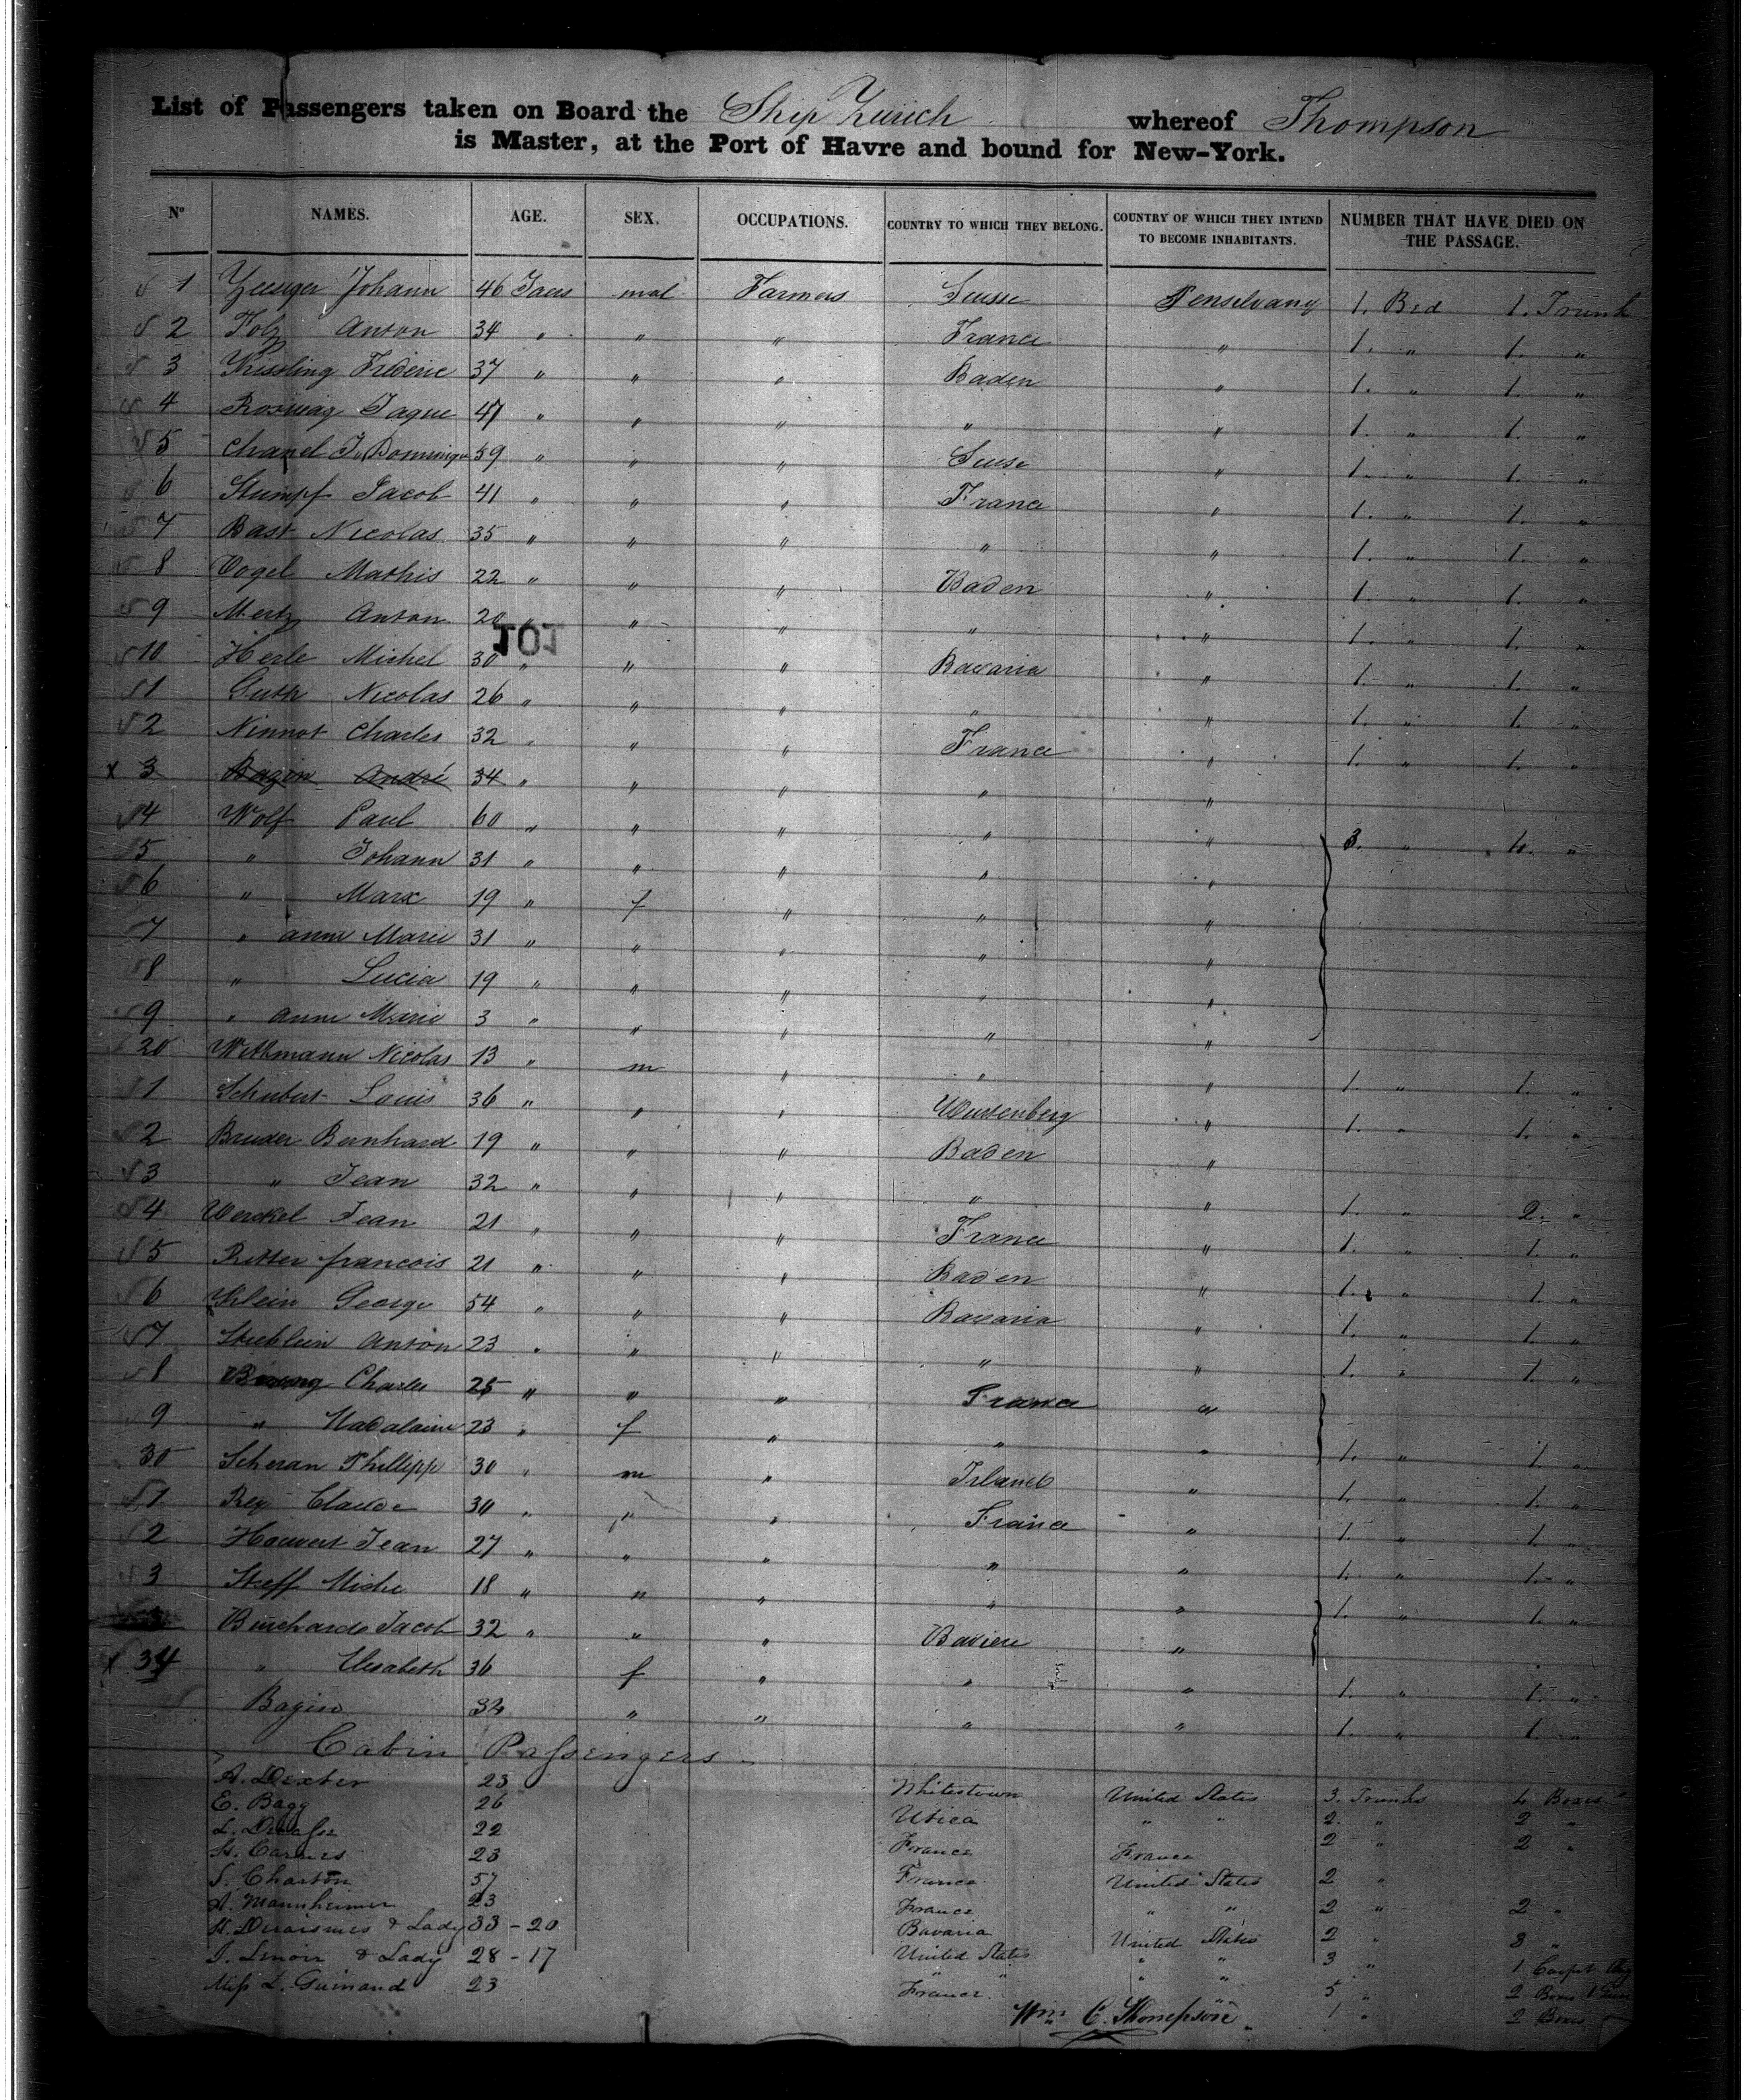 List of Passengers taken on Board the Ship Zurich whereof Thompson
is Master, at the Port of Havre and bound for New-York.
N° NAMES. AGE. SEX. OCCUPATIONS. COUNTRY TO WHICH THEY BELONG. COUNTRY OF WHICH THEY INTEND TO BECOME INHABITANTS. NUMBER THAT HAVE DIED ON THE PASSAGE.
1 Johann 46 mal Farmers Pensilvany 1. Bed 1. Trunk
2 Folz Anton 34 " " " France " 1. " 1. "
3 Kissling Fréderic 37 " " " Baden " 1. " 1. "
4 Rosswag Jaque 47 " " " " " 1. " 1. "
5 Chanel J. Dominique 59 " " " " 1. " 1. "
6 Stumpf Jacob 41 " " " France " 1. " 1. "
7 Bast Nicolas 35 " " " " " 1. " 1. "
8 Vogel Mathis 22 " " " Baden " 1. " 1. "
9 Mertz Anton 20 " " " " " 1. " 1. "
JOJ
10 Herle Michel 30 " " " Bavaria " 1. " 1. "
1 Guth Nicolas 26 " " " " " 1. " 1. "
2 Ninnot Charles 32 " " " France " 1. " 1. "
x 3 Bagin André 34 " " " " "
4 Wolf Paul 60 " " " " " 3. " "
5 " Johann 31 " " " " "
6 " Marx 19 " f " " "
7 " anne Marie 31 " " " " "
8 " Lucia 19 " " " " "
9 " anne Marie 3 " " " " "
20 Wittmann Nicolas 13 " m " " " 1. " 1. "
1 Schubert Louis 36 " " " Wurtenberg " 1. " 1. "
2 Bruder Bernhard 19 " " " Baden "
3 " Jean 32 " " " " " 1. " 2. "
4 Werckel Jean 21 " " " France " 1. " 1. "
5 Ritter francois 21 " " " Baden " 1. " 1. "
6 Klein George 54 " " " Bavaria " 1. " 1. "
7 Anton 23 " " " " " 1. " 1. "
8 Charles 25 " " " France "
9 " Madalaine 23 " f " " " 1. " 1. "
30 Scheran Phillipp 30 " m " Irland " 1. " 1. "
1 Rey Claude 30 " " " France " 1. " 1. "
2 Houvert Jean 27 " " " " " 1. " 1. "
3 Steff 18 " " " " " 1. " 1. "
Burchards Jacob 32 " " " Baviere "
x 34 " Elisabeth 36 f " " " 1. " 1. "
Bagin 34 " " " " 1. " 1. "
Cabin Passengers
A. Dexter 23 Whitestown United States 3. Trunks 4 Boxes
E. Bagg 26 Utica " " 2. " 2 "
L. 22 France France 2 " 2 "
H. Carnes 23 France United States 2 "
S. Charton 57 France " " 2 " 2 "
A. Mannheimer 23 Bavaria United States 2 " 3 "
H. Deraismes & Lady 33 - 20 United States " " 3 " 1 Carpet Bag
J. Lenoir & Lady 28 - 17 " " " " 5 " 2 Boxes
Miss L. Guinand 23 France " 1 " 2 Boxes
Wm. C. Thompson